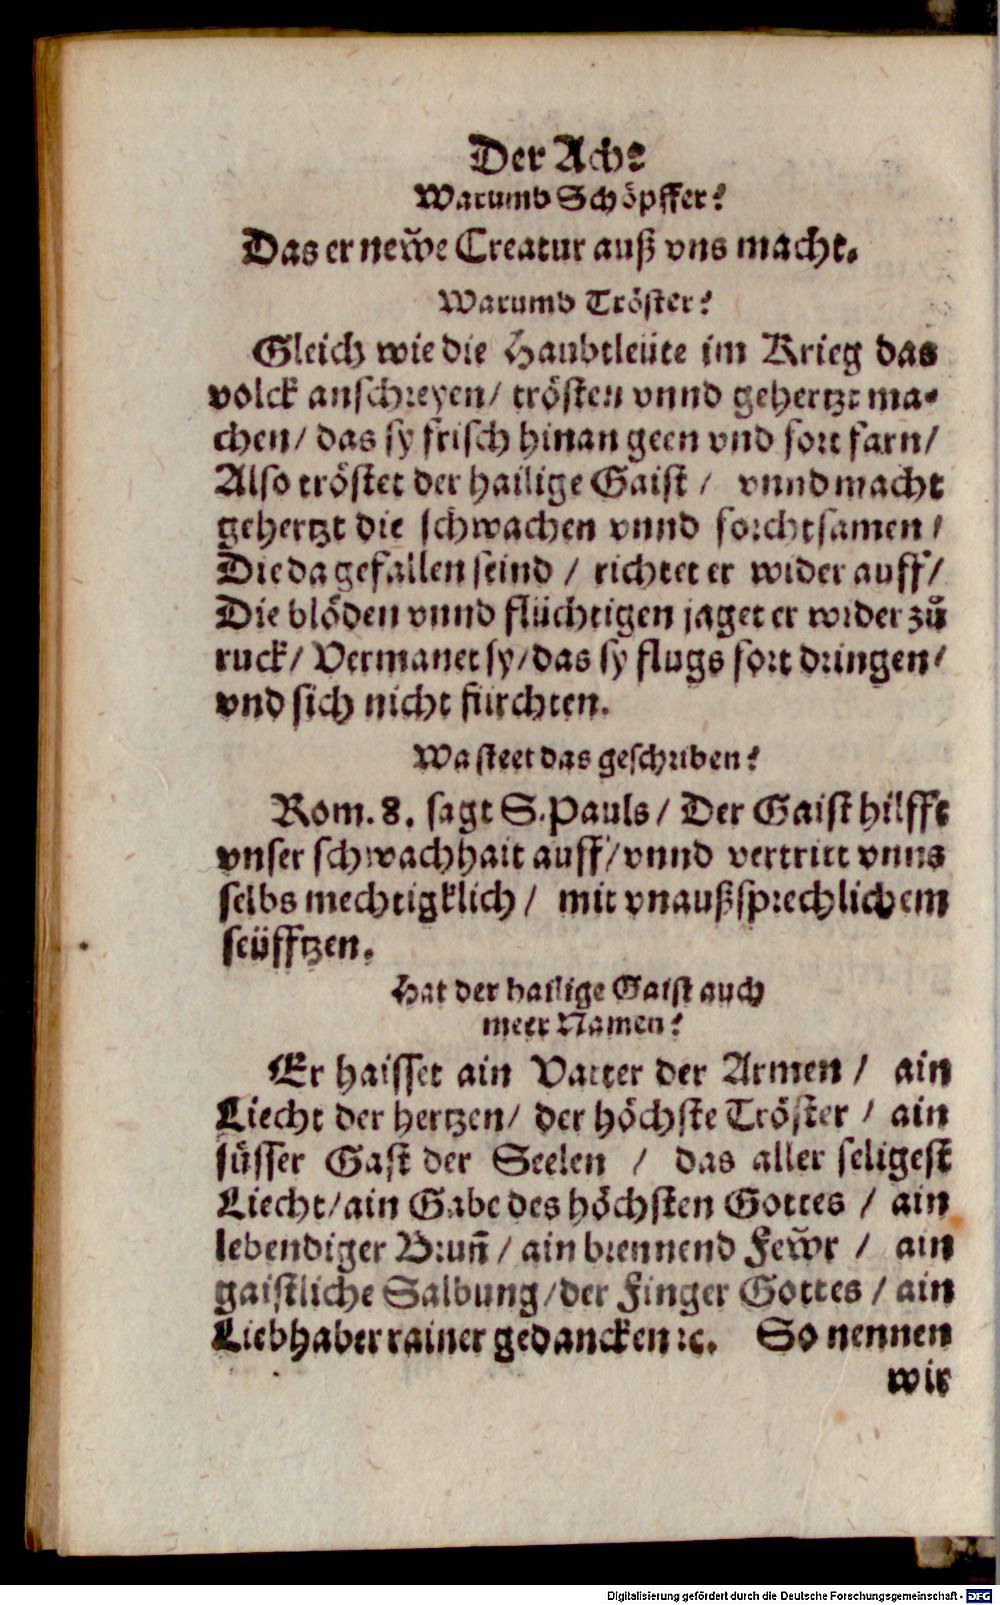 Der Ach⸗
Warumb Schöpffer?
Das er new̃e Creatur auß vns macht.
Warumb Tröster?
Gleich wie die Haubtleüte im Krieg das
volck anschreyen/ trösten vnnd gehertzt ma⸗
chen/ das sy frisch hinan geen vnd fort farn/
Also tröstet der hailige Gaist / vnnd macht
gehertzt die schwachen vnnd forchtsamen /
Die da gefallen seind / richtet er wider auff/
Die blöden vnnd flüchtigen jaget er wider zů
ruck/ Vermanet sy/ das sy flugs fort dringen/
vnd sich nicht fürchten.
Wa steet das geschriben?
Rom. 8. sagt S. Pauls / Der Gaist hilfft
vnser schwachhait auff/ vnnd vertritt vnns
selbs mechtigklich / mit vnaußsprechlichem
seüfftzen.
Hat der hailige Gaist auch
meer Namen?
Er haisset ain Vatter der Armen / ain
Liecht der hertzen/ der höchste Tröster / ain
süsser Gast der Seelen / das aller seligest
Liecht/ ain Gabe des höchsten Gottes / ain
lebendiger Brun̄ / ain brennend Few̃r / ain
gaistliche Salbung / der Finger Gottes / ain
Liebhaber rainer gedancken ꝛc. So nennen
wir
Digitalisierung gefördert durch die Deutsche Forschungsgemeinschaft - DFG